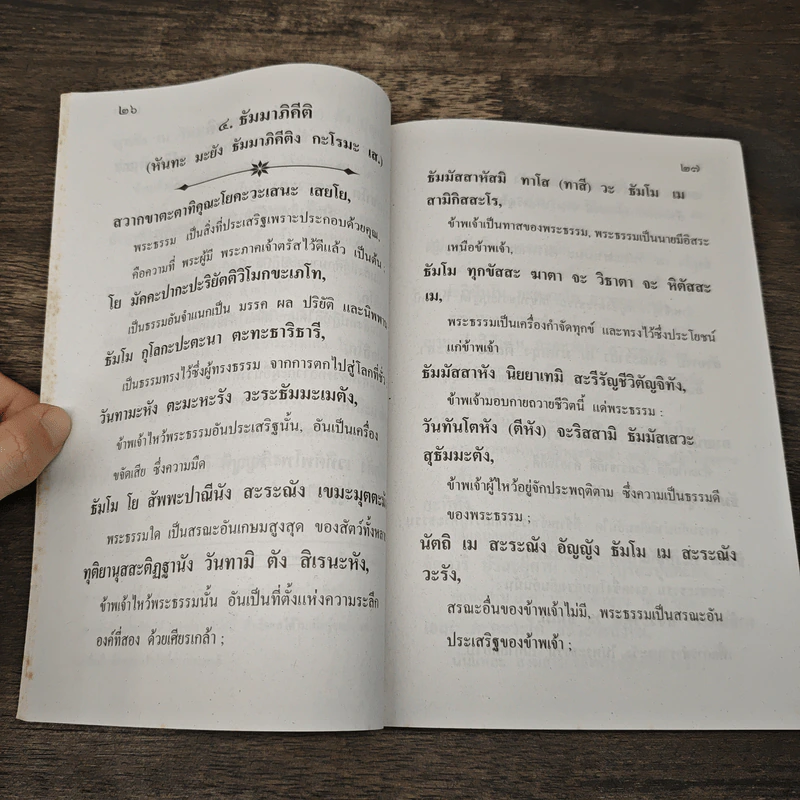 ๒๖
๔. ธัมมาภิคีติ
(หันทะ มะยัง ธัมมาภิคีติง กะโรมะ เส.)
สวากขาตะตาทิคุณะโยคะวะเสนะ เสยโย,
พระธรรม เป็นสิ่งที่ประเสริฐเพราะประกอบด้วยคุณ,
คือความที่ พระผู้มี พระภาคเจ้าตรัสไว้ดีแล้ว เป็นต้น ;
โย มัคคะปากะปะริยัตติวิโมกขะเภโท,
เป็นธรรมอันจำแนกเป็น มรรค ผล ปริยัติ และนิพพาน
ธัมโม กุโลกะปะตะนา ตะทะธาริธารี,
เป็นธรรมทรงไว้ซึ่งผู้ทรงธรรม จากการตกไปสู่โลกที่ชั่ว
วันทามะหัง ตะมะหะรัง วะระธัมมะเมตัง,
ข้าพเจ้าไหว้พระธรรมอันประเสริฐนั้น, อันเป็นเครื่อง
ขจัดเสีย ซึ่งความมืด
ธัมโม โย สัพพะปาณีนัง สะระณัง เขมะมุตตะมัง
พระธรรมใด เป็นสรณะอันเกษมสูงสุด ของสัตว์ทั้งหลาย
ทุติยานุสสะติฏฐานัง วันทามิ ตัง สิเรนะหัง,
ข้าพเจ้าไหว้พระธรรมนั้น อันเป็นที่ตั้งแห่งความระลึก
องค์ที่สอง ด้วยเศียรเกล้า ;
๒๗
ธัมมัสสาหัสมิ ทาโส (ทาสี) วะ ธัมโม เม
สามิกิสสะโร,
ข้าพเจ้าเป็นทาสของพระธรรม, พระธรรมเป็นนายมีอิสระ
เหนือข้าพเจ้า,
ธัมโม ทุกขัสสะ ฆาตา จะ วิธาตา จะ หิตัสสะ
เม,
พระธรรมเป็นเครื่องกำจัดทุกข์ และทรงไว้ซึ่งประโยชน์
แก่ข้าพเจ้า
ธัมมัสสาหัง นิยยาเทมิ สะรีรัญชีวิตัญจิทัง,
ข้าพเจ้ามอบกายถวายชีวิตนี้ แด่พระธรรม ;
วันทันโตหัง (ตีหัง) จะริสสามิ ธัมมัสเสวะ
สุธัมมะตัง,
ข้าพเจ้าผู้ไหว้อยู่จักประพฤติตาม ซึ่งความเป็นธรรมดี
ของพระธรรม ;
นัตถิ เม สะระณัง อัญญัง ธัมโม เม สะระณัง
วะรัง,
สรณะอื่นของข้าพเจ้าไม่มี, พระธรรมเป็นสรณะอัน
ประเสริฐของข้าพเจ้า ;